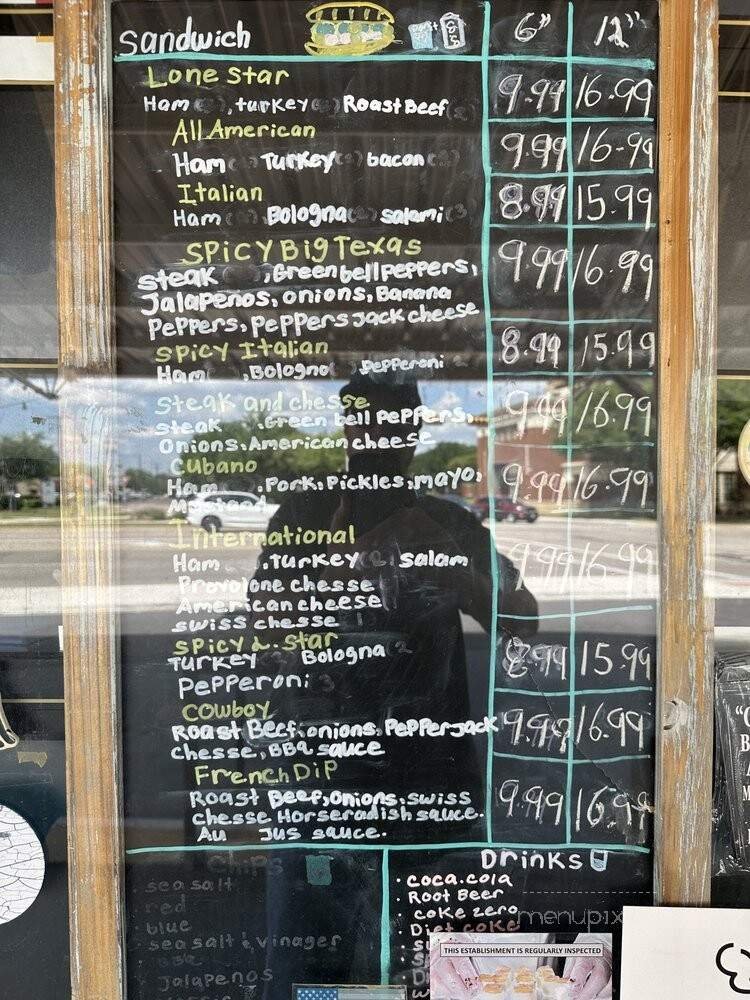 Sandwich 6" 12"
Lone Star 9.99 16.99
Ham, turkey Roast Beef
All American 9.99 16-99
Ham Turkey bacon
Italian 8.99 15.99
Ham Bologna salami
SPicy Big Texas 9.99 16.99
Steak ,Green bell Peppers,
Jalapenos, onions, Banana
PePPers, PePPers Jack cheese
SPicy Italian 8.99 15.99
Ham ,Bologna ,Pepperoni
Steak and chesse 9.99 16.99
steak .Green bell PePPers,
Onions.American cheese
Cubano 9.99 16.99
Ham .Pork.Pickles,mayo,
International 9.99 16.99
Ham .Turkey salam
Provolone chesse
American cheese
swiss chesse
SPicy L.Star 8.99 15.99
Turkey Bologna 2
PePPeroni 3
Cowboy 9.99 16.99
Roast Beef.onions.PePPerjack
Chesse, BBQ sauce
French DiP 9.99 16.99
Roast Beef,Onions.swiss
chesse Horseradish sauce.
Au Jus sauce.
Chips
sea salt
red
blue
sea salt & vinager
Jalapenos
Drinks
coca.cola
Root Beer
coke zero
Diet coke
menupix
THIS ESTABLISHMENT IS REGULARLY INSPECTED